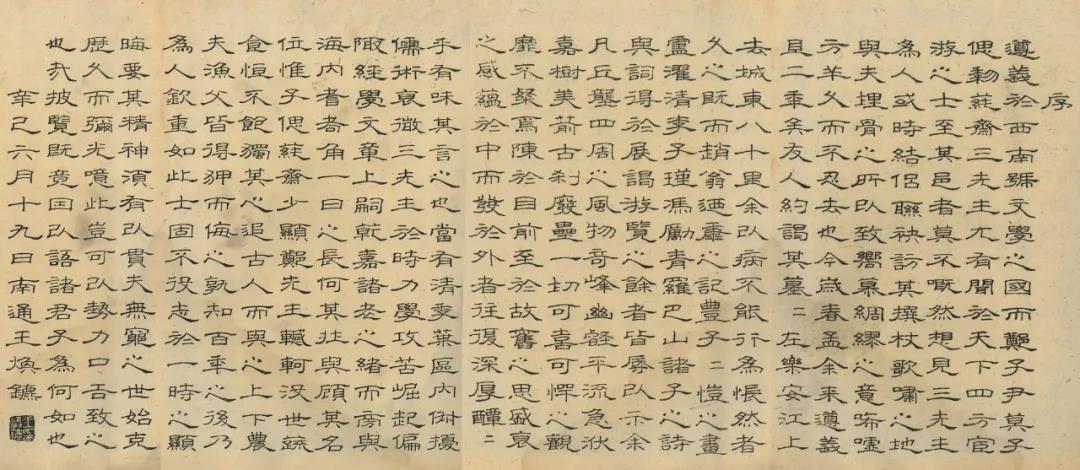 序
遵義於西南號文學之國而鄭子尹莫子
偲黎蒓齋三先生尤有聞於天下四方宦
游之士至其邑者莫不嘅然想見三先生
為人或時結侶聯袂訪其撰杖歌嘯之地
與夫埋骨之所以致嚮慕綢繆之意唏噓
方羊久而不忍去也今歲春孟余來遵義
且二年矣友人約謁其墓二在樂安江上
去城東八十里余以病不能行為悵然者
久之既而趙翁迺康之記豐子二愷之畫
盧濯清李子瑾馮勵青羅巴山諸子之詩
與詞得於展謁游覽之餘者皆辱以示余
凡丘壟四周之風物奇峰幽壑平流急洑
嘉樹美箭古刹廢壘一切可喜可愕之觀
靡不粲焉陳於目前至於故舊之思盛衰
之感蘊於中而發於外者往復深厚醰二
乎有味其言之也當有清季葉區內俶擾
儒術衰微三先生於時力學攻苦崛起偏
陬經學文章上嗣乾嘉諸老之緒而旁與
海內者角一日之長何其壯與顧其名
位惟子偲蒓齋少顯鄭先生轗軻沒世蔬
食恒不飽獨其心追古人而與之上下農
夫漁父皆得狎而侮之孰知百年之後乃
為人欽重如此士固不役志於一時之顯
晦要其精神湏有以貫夫無窮之世始克
歷久而彌光噫此豈可以勢力口舌致之
也哉披覽既竟因以語諸君子為何如也
辛巳六月十九日南通王煥鑣